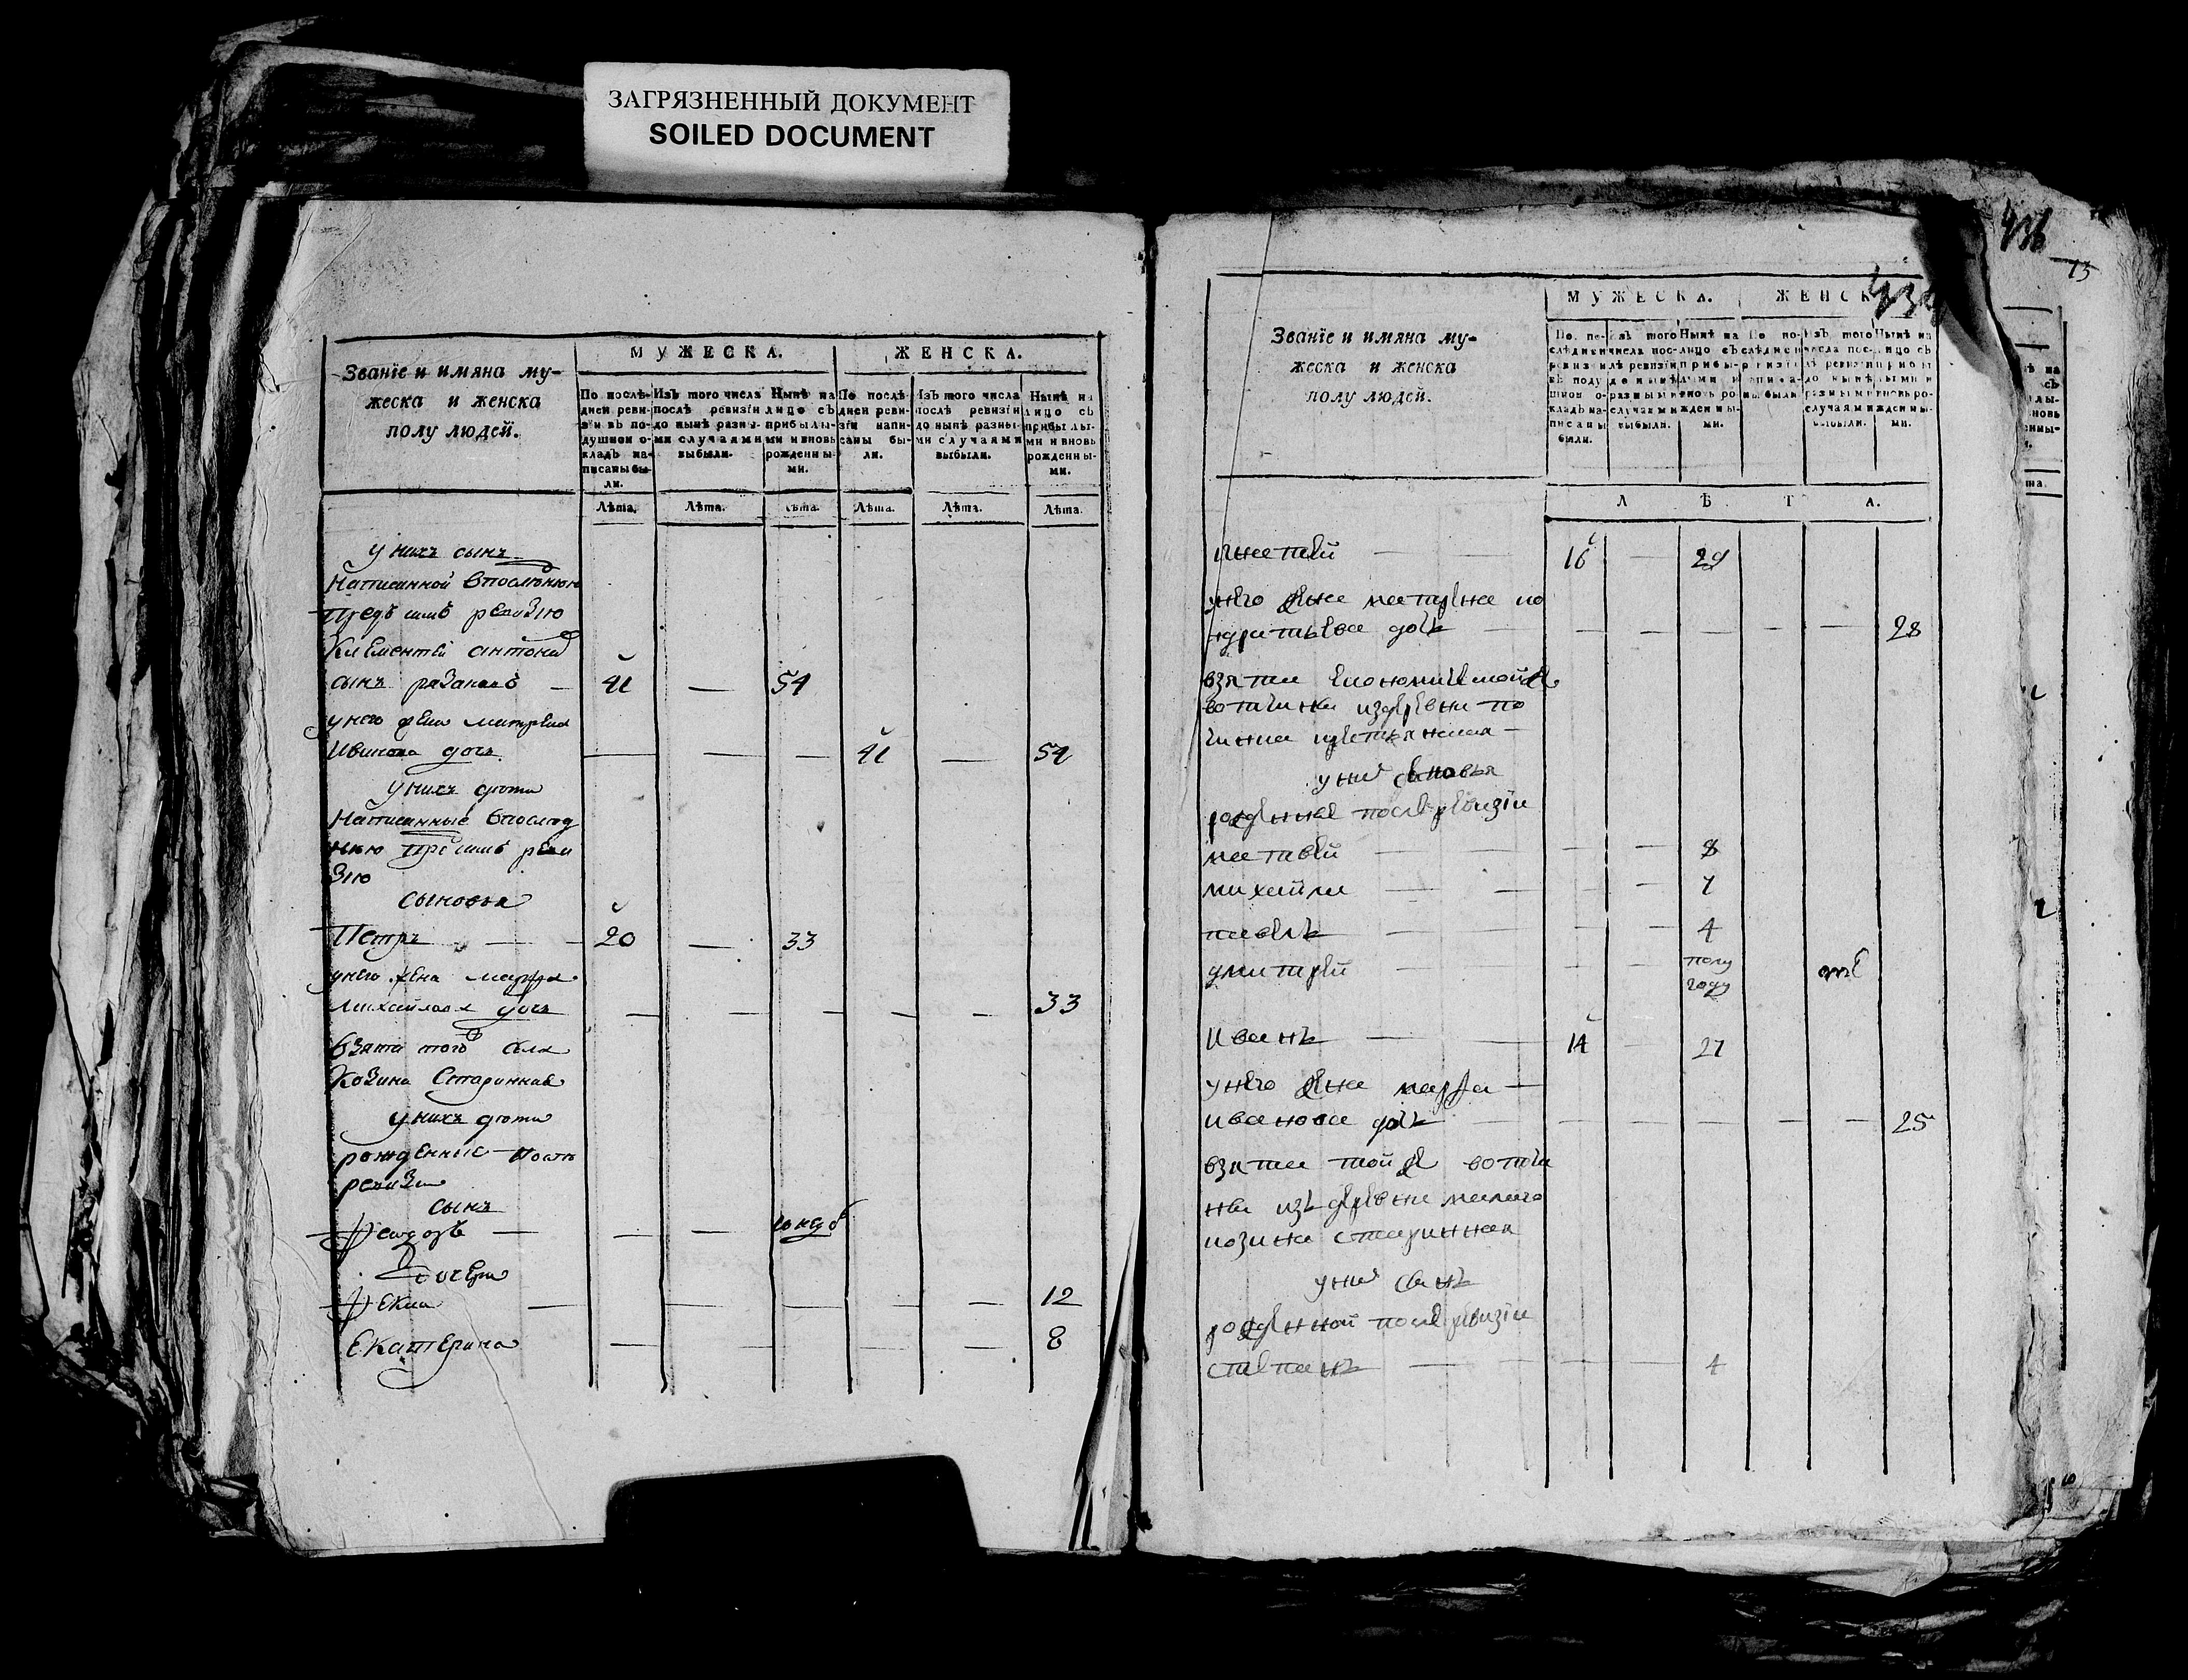 ЗАГРЯЗНЕННЫЙ ДОКУМЕНТ
SOILED DOCUMENT
Званїе и имяна му-
жеска и женска
полу людей.
МУЖЕСКА.
ЖЕНСКА.
По послѣ-
дней реви-
зїи въ по-
душном о-
кладѣ на-
писаны бы-
ли.
Изъ того числа
послѣ ревизїи
до нынѣ разны-
ми случаями
выбыли.
Нынѣ на
лицо съ
прибылы-
ми и вновь
рожденны-
ми.
По послѣ-
дней реви-
зїи напи-
саны бы-
ли.
Изъ того числа
послѣ ревизїи
до нынѣ разны-
ми случаями
выбыли.
Нынѣ на
лицо съ
прибылы-
ми и вновь
рожденны-
ми.
Лѣта. Лѣта. Лѣта. Лѣта. Лѣта. Лѣта.
у нихъ сынъ
Написанной
ревизію
Климентей антоно
сынъ 41 — 54
у него жена матрена
Иванова дочь — — — 41 — 54
у нихъ дѣти
Написанные впослед
нюю реви
зию
сыновья
Петръ — 20 — 33
у него жена марфа
Михайлова дочь — — — — — 33
взята того села
Козина Старинная
у нихъ дѣти
рожденные послѣ
ревизіи
сынъ
Федоръ — — —
дочери
Фекла — — — — — 12
Екатерина — — — — — 8
436
13
Званїе и имяна му-
жеска и женска
полу людей.
МУЖЕСКА.
ЖЕНСК
По по-
слѣдней
ревизїи
въ поду
шном о-
кладѣ на-
писаны
были.
Изъ того
числа пос-
лѣ ревизїи
до нынѣ
разными
случаями
выбыли.
Нынѣ на
лицо съ
прибы-
лыми и
вновь ро
жденны-
ми.
По по-
слѣдней
ревизїи
написа-
ны были
Изъ того
числа пос-
лѣ ревизїи
до нынѣ
разными
случаями
выбыли.
Нынѣ на
лицо съ
прибы
лыми и
вновь ро-
жденны-
ми.
ЛѢТА.
16 — 29
у него жена матрена ко
ндратьева дочь — — — — — 28
взята Економической
вотчины издеревни по
чинка крестьянская
у них сыновья
рожденные после ревизїи
матвей — — — 8
михайла — — — 7
павелъ — — — 4
дмитрей — — — полу
году
Иванъ — 14 — 27
у него жена марфа —
иванова дочь — — — — — 25
взята той же вотчи
ны изъ деревни малаго
козина старинная
у них сынъ
рожденной после ревизїи
степанъ — — — 4